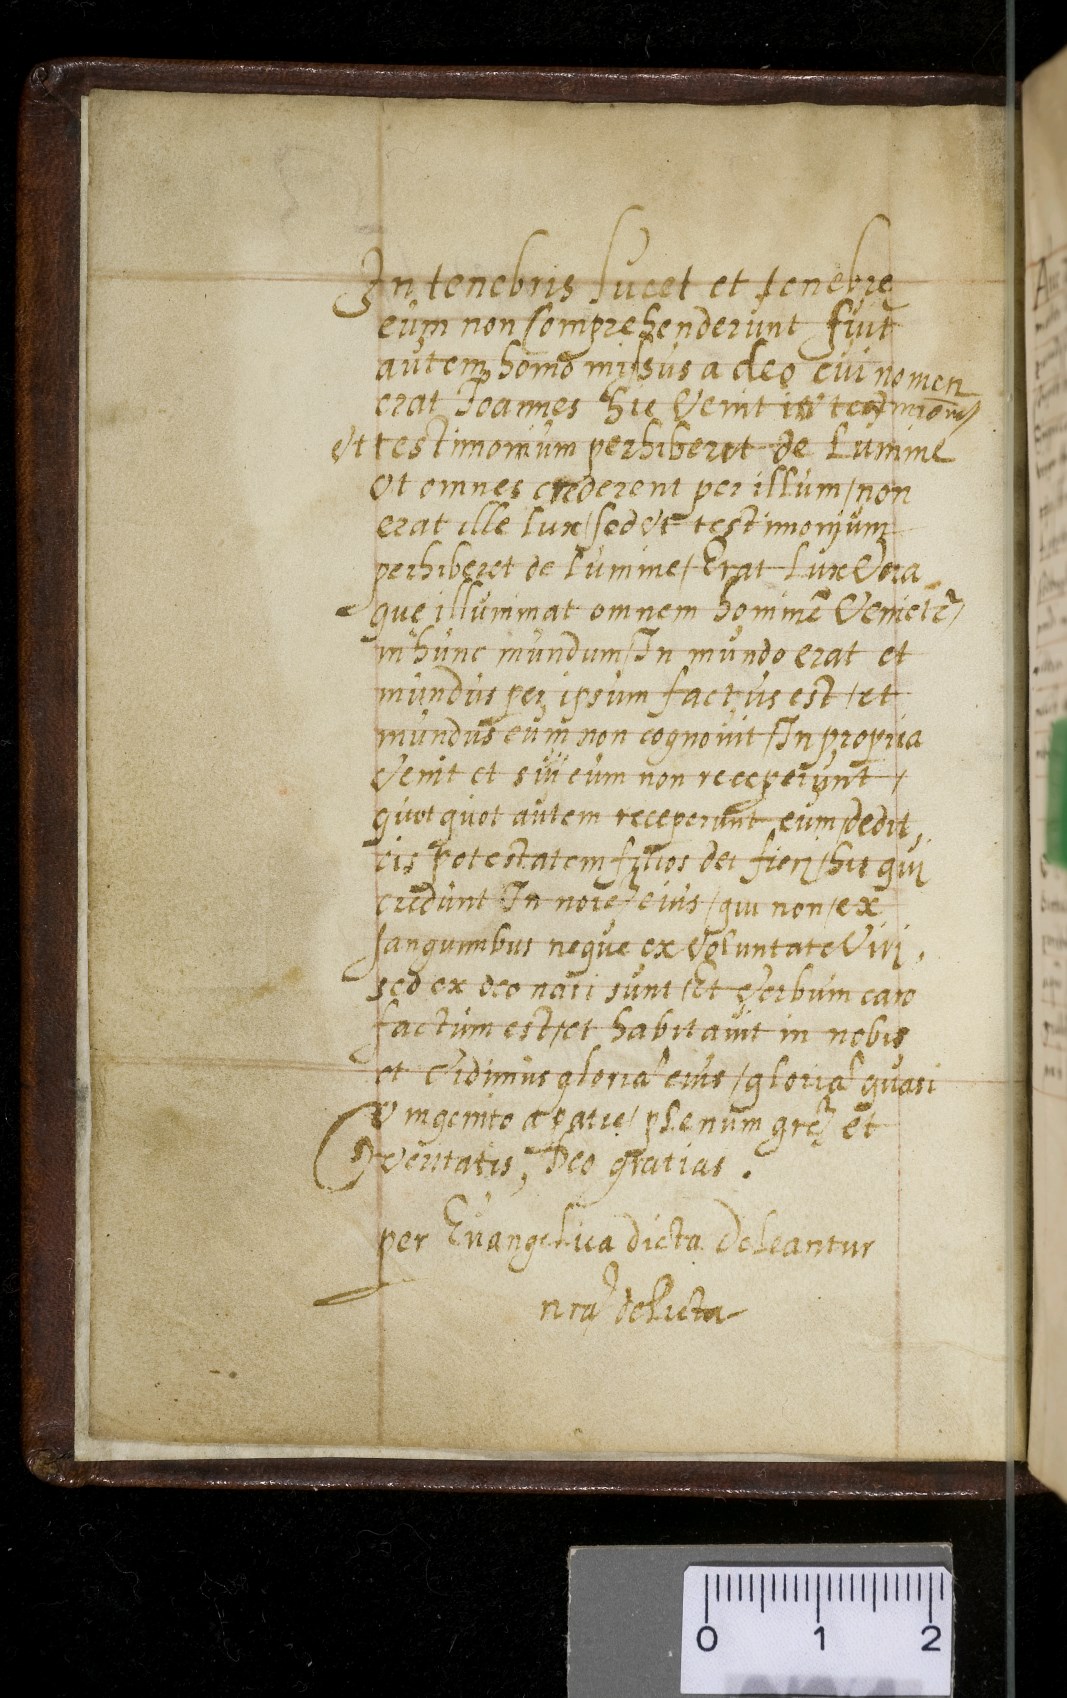 In tenebris lucet et tenebre
eum non comprehenderunt fuit
autem homo missus a deo cui nomen
erat Joannes hic venit in testimoniū
ut testimonium perhiberet de Lumine
Ut omnes crederent per illum / non
erat ille lux / sed ut testimonium
perhiberet de lumine / Erat Lux Vera
que illuminat omnem hominē Venietē /
in hunc mundum / In mundo erat et
mundus per ipsum factus est / et
mundus eum non cognovit / In propria
Venit et sui eum non receperunt /
quotquot autem receperunt eum / dedit
eis potestatem filios dei fieri / his qui
credunt In noīe eius / qui non / ex
sanguinibus neque ex Voluntate Viri,
sed ex deo nati sunt / Et Verbum caro
factum est / et habitavit in nobis
et Vidimus gloriā eius / gloriā quasi
Unigenito a patre / plenum grē et
veritatis, Deo gratias.
per Evangelica dicta deleantur
nrā delicta
0 1 2